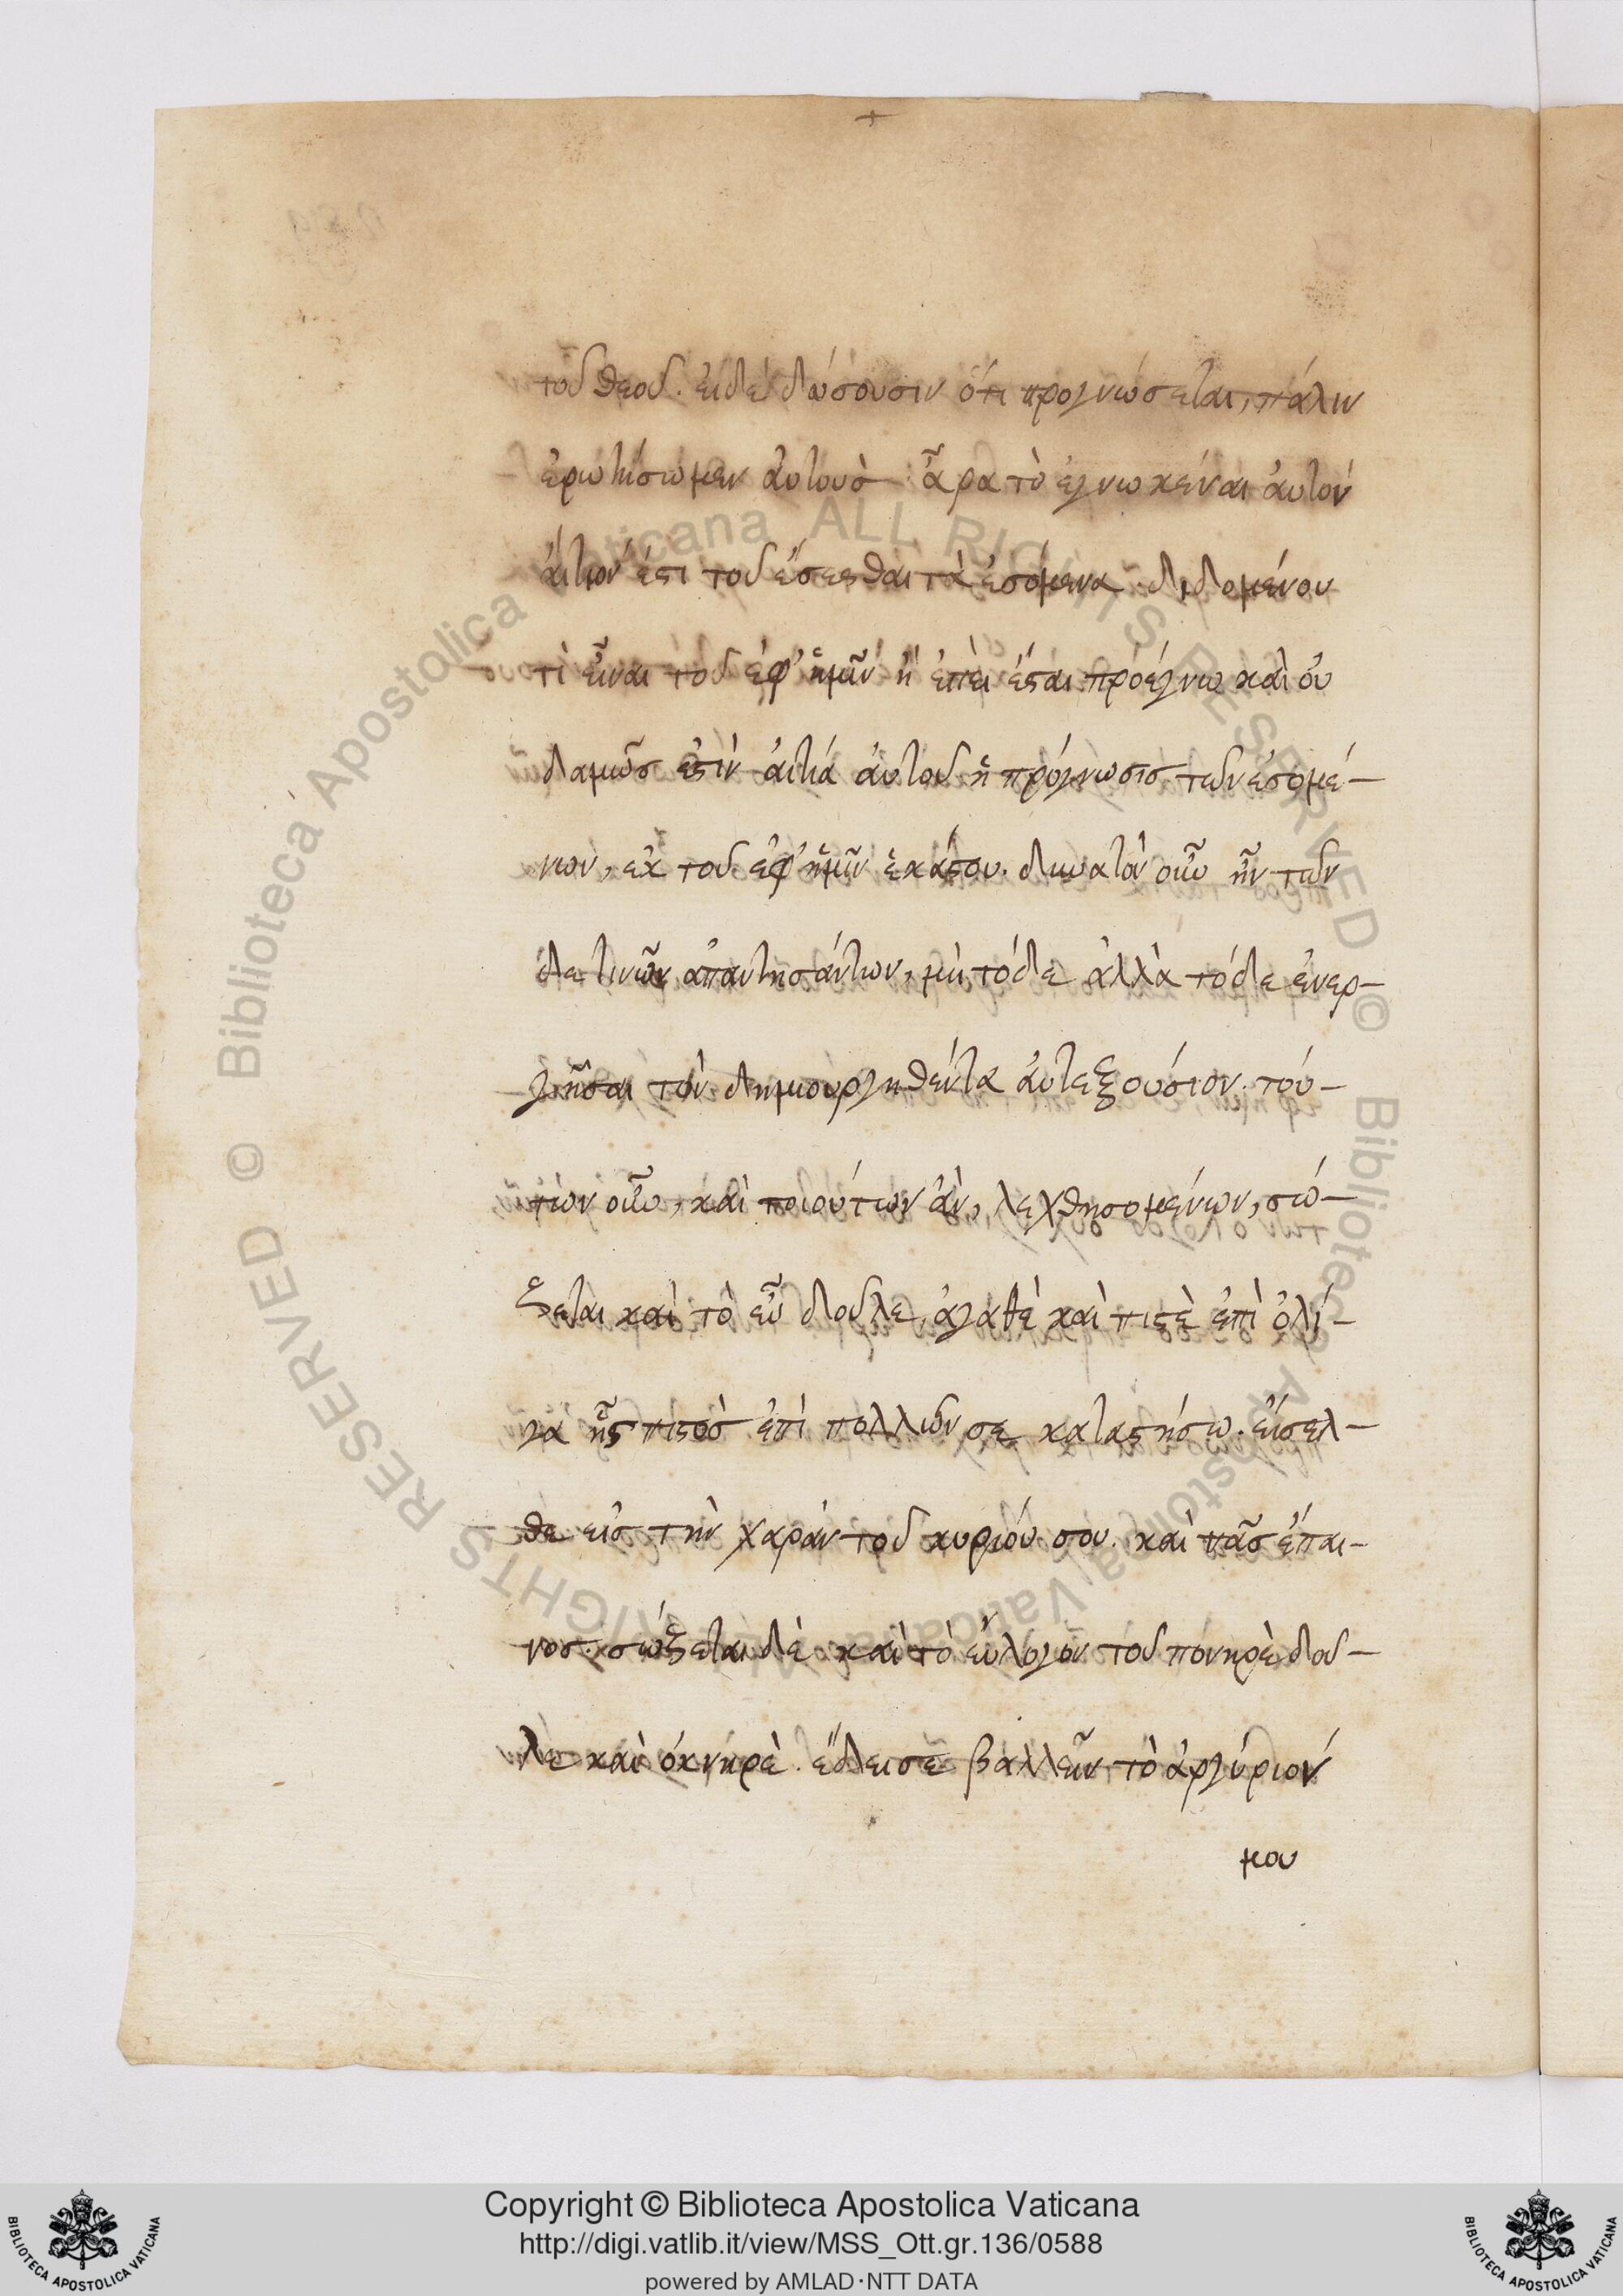 τοῦ θεοῦ. εἰ δὲ δώσουσιν ὅτι προγνώσεται, πάλιν
ἐρωτήσωμεν ἀυτοὺσ ἆρα τὸ ἐγνωκέναι ἀυτὸν
ἄιτιόν ἐστι τοῦ ἔσεσθαι τὰ ἐσόμενα διδομένου
τὶ εἶναι τοῦ ἐφ' ἡμῖν ἢ ἐπεὶ ἔσται προέγνω καὶ ὀυ
δαμῶσ ἐστὶν ἀιτία ἀυτοῦ ἡ πρόγνωσισ τῶν ἐσομέ-
νων, ἐκ τοῦ ἐφ' ἡμῖν ἑκάστου. δυνατὸν οὖν ἦν τῶν
δε τινῶν ἀπαντησάντων, μὴ τόδε ἀλλὰ τόδε ἐνερ-
γῆσαι τὸν δημιουργηθέντα ἀυτεξούσιον. τού-
των οὖν, καὶ τοιούτων ἂν, λεχθησομένων, σώ-
ζεται καὶ τὸ εὖ δοῦλε ἀγαθὲ καὶ πιστὲ ἐπὶ ὀλί-
γα ἦς πιστὸσ ἐπὶ πολλῶν σε καταστήσω. εἴσελ-
θε εἰσ τὴν χαρὰν τοῦ κυρίου σου. καὶ πᾶσ ἔπαι-
νοσ. σώζεται δὲ καὶ τὸ εὔλογον τοῦ πονηρὲ δοῦ-
λε καὶ ὀκνηρὲ. ἔδει σε βαλλεῖν τὸ ἀργύριόν
μου
Copyright © Biblioteca Apostolica Vaticana
http://digi.vatlib.it/view/MSS_Ott.gr.136/0588
powered by AMLAD·NTT DATA